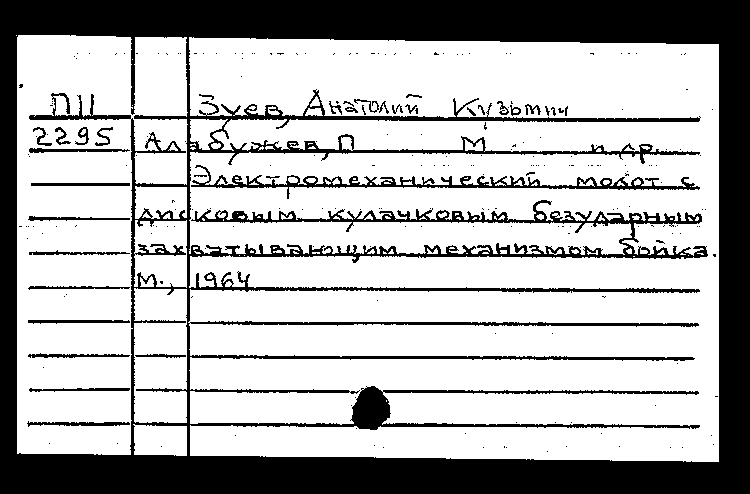 П11 Зуев, Анатолий Кузьмич
2295 Алабужев, П М и др.
Электромеханический молот с
дисковым кулачковым безударным
захватывающим механизмом бойка.
М., 1964